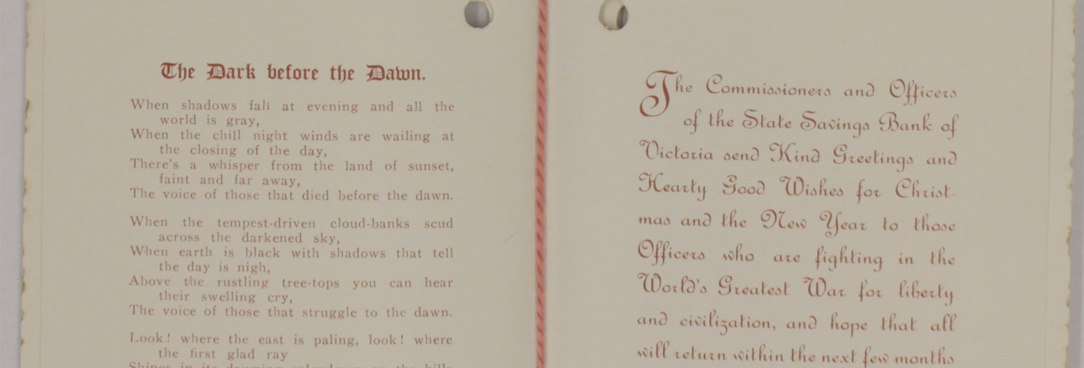 The Dark before the Dawn.
When shadows fall at evening and all the
world is gray,
When the chill night winds are wailing at
the closing of the day,
There's a whisper from the land of sunset,
faint and far away,
The voice of those that died before the dawn.
When the tempest-driven cloud-banks scud
across the darkened sky,
When earth is black with shadows that tell
the day is nigh,
Above the rustling tree-tops you can hear
their swelling cry,
The voice of those that struggle to the dawn.
Look! where the east is paling, look! where
the first glad ray
The Commissioners and Officers
of the State Savings Bank of
Victoria send Kind Greetings and
Hearty Good Wishes for Christ-
mas and the New Year to those
Officers who are fighting in the
World's Greatest War for liberty
and civilization, and hope that all
will return within the next few months